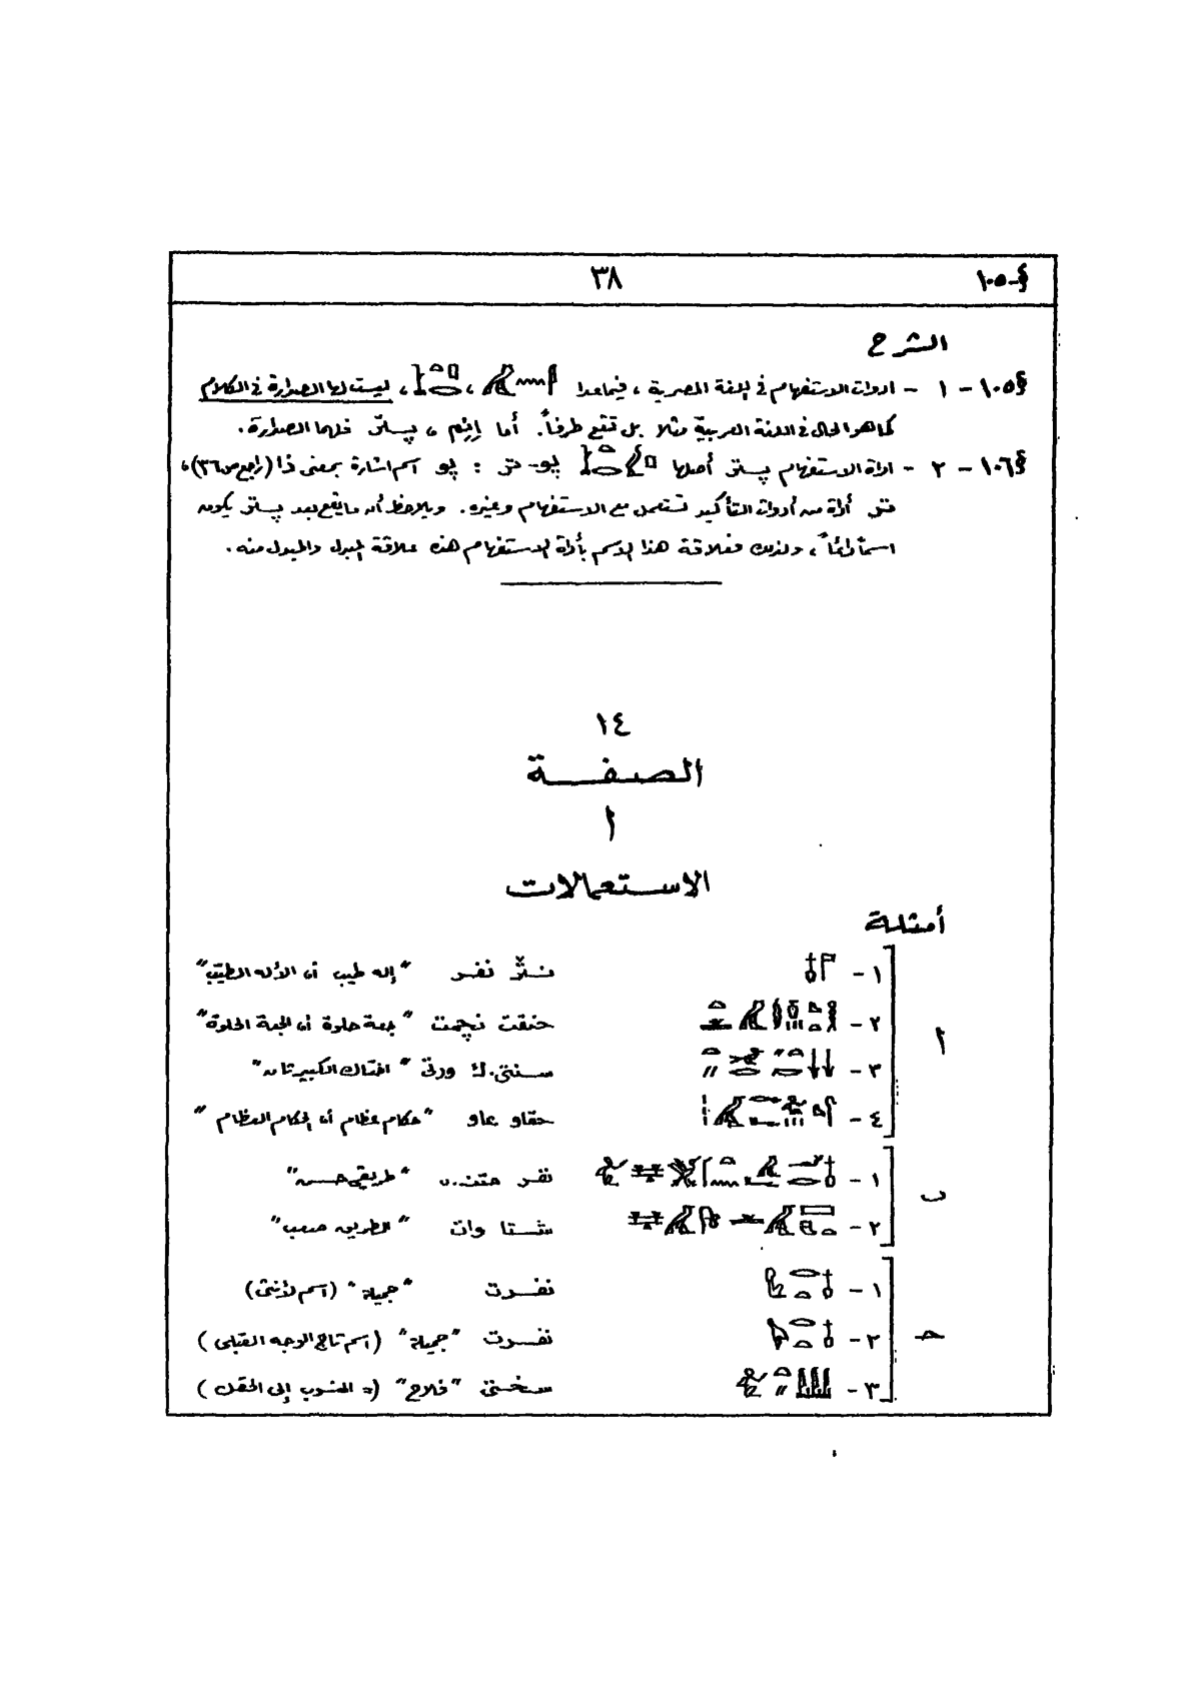 §-١٠٥ ٣٨
الشرح
§١٠٥ - ١ - ادوات الاستفهام في اللغة المصرية ، فيماعدا ، ، ليست لها الصدارة في الكلام
كما هو الحال في اللغة العربية مثلا بل تقع طرفاً. أما إنم ، پستر فلهما الصدارة.
§١٠٦ - ٢ - اداة الاستفهام پستر أصلها پو- تر : پو اسم اشارة بمعنى ذا (راجع ص ٣٦)،
تر أداة من أدوات التأكيد تستعمل مع الاستفهام وغيره. ويلاحظ أن ما يقع بعد پستر يكون
اسماً دائماً ، ولذلك فعلاقة هذا الاسم بأداة الاستفهام هذه علاقة البدل والمبدل منه.
١٤
الصفة
ا
الاستعمالات
أمثلة
ا
١ - نثر نفر "إله طيب أو الأله الطيب"
٢ - حنقت نچمت "جعة حلوة أو الجعة الحلوة"
٣ - سنتي.ك ورتي "اختاك الكبيرتان"
٤ - حقاو عاو "حكام عظام أو الحكام العظام"
ب
١ - نفر متن.ى "طريقي حسن"
٢ - شتا وات "الطريق صعب"
حـ
١ - نفرت "جميلة" (اسم لأنثى)
٢ - نفرت "جميلة" (اسم تاج الوجه القبلى)
٣ - سختى "فلاح" (= المنسوب إلى الحقل)